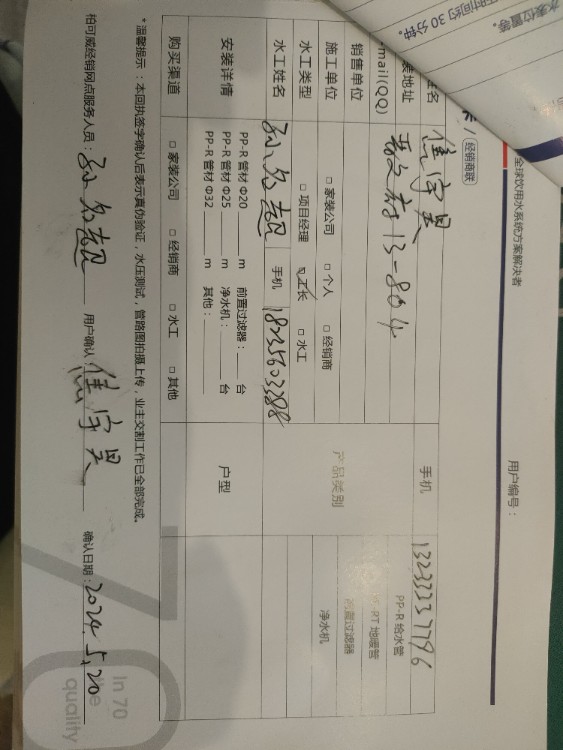 水表位置等。
时间约 30 分钟。
/ 经销商联
全球饮用水系统方案解决者
用户编号：
姓名 佳宇昊 手机 13233337796
装地址 敦文村 13-804
mail(QQ)
销售单位
施工单位 □ 家装公司 □ 个人 □ 经销商
水工类型 □ 项目经理 工长 □ 水工
产品类别
PP-R 给水管
RT 地暖管
前置过滤器
净水机
水工姓名 孙名超 手机 18235603288
安装详情
PP-R 管材 Φ20 m 前置过滤器： 台
PP-R 管材 Φ25 m 净水机： 台
PP-R 管材 Φ32 m 其他：
户型
购买渠道 □ 家装公司 □ 经销商 □ 水工 □ 其他
*温馨提示：本回执签字确认后表示真伪验证，水压测试，管路图拍摄上传，业主交割工作已全部完成。
柏可威经销网点服务人员：孙名超 用户确认：佳宇昊 确认日期：2024.5.20
In 70
the
quality